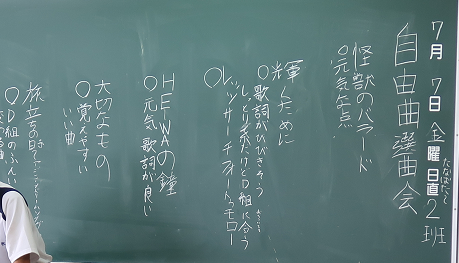 7月 7日 金曜日 日直 2班
たなばた
自由曲選曲会
怪獣のバラード
○元気な点
輝くために
○歌詞がひびきそう
しっとり系だけどD組に合う
○レッツサーチフォートゥモロー
HEIWAの鐘
○元気 歌詞が良い
大切なもの
○覚えやすい
いい曲
旅立ちの時
○D組の